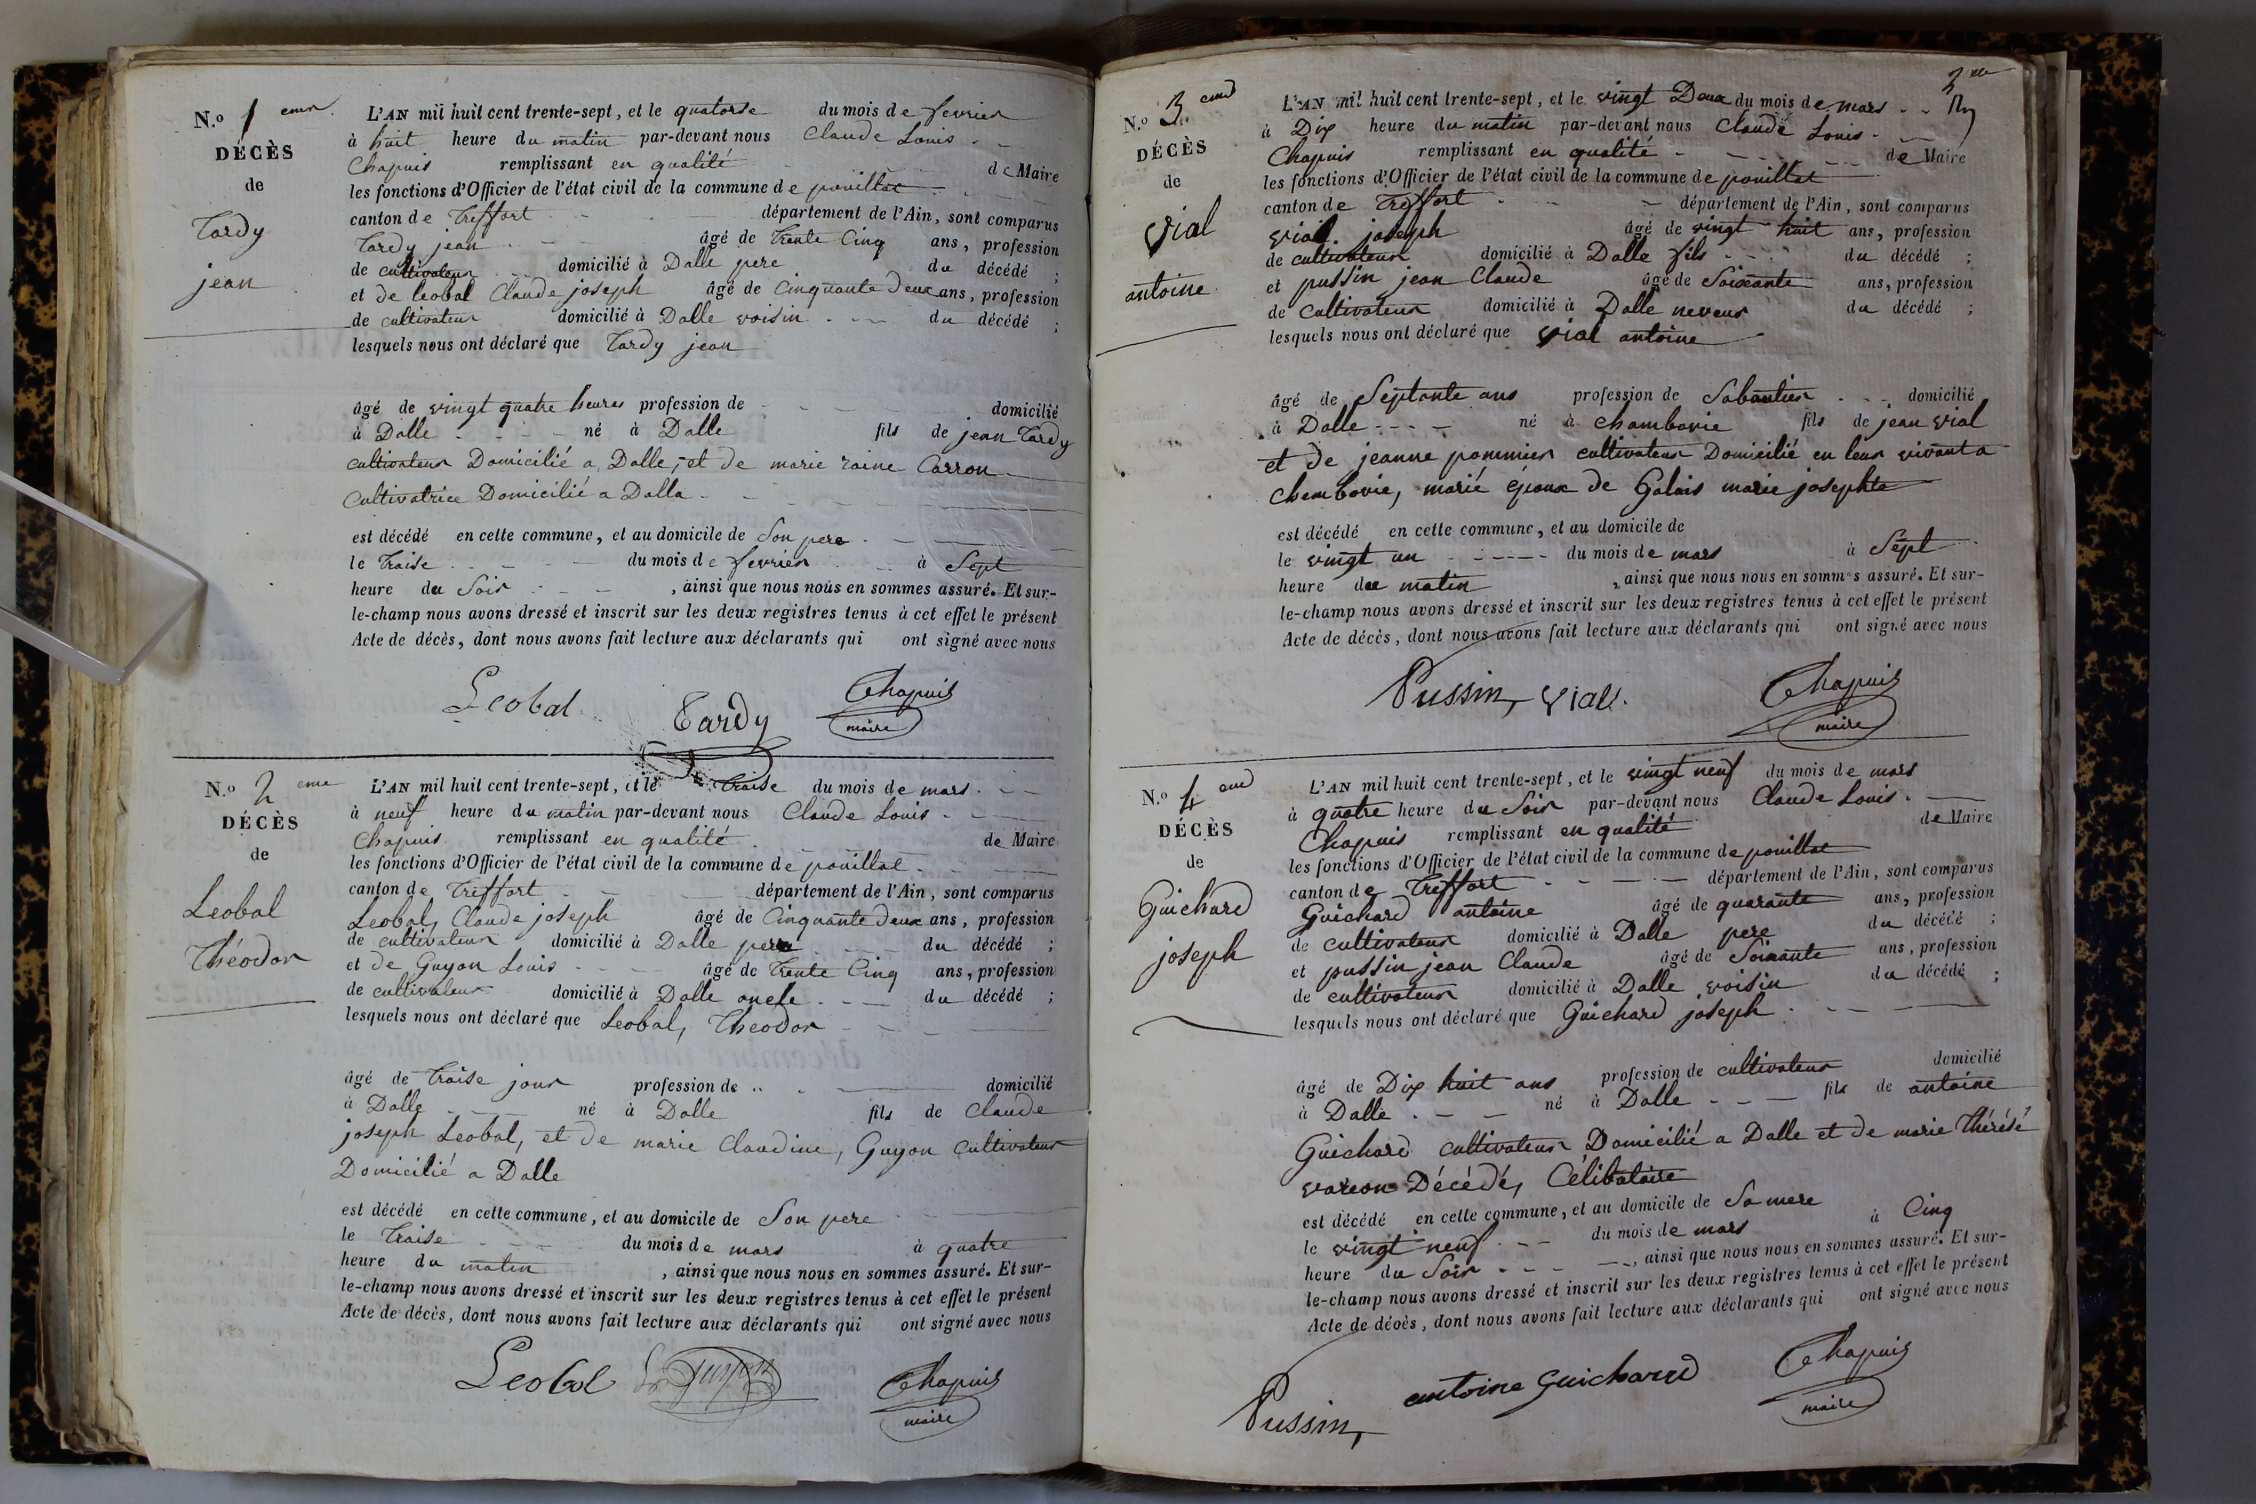 N.º 1 eme
DÉCÈS
de
Tardy
jean
L'AN mil huit cent trente-sept, et le quatorse du mois de fevrier
à huit heure du matin par-devant nous Claude Louis
Chapuis remplissant en qualité de Maire
les fonctions d'Officier de l'état civil de la commune de pouillat
canton de Treffort département de l'Ain, sont comparus
Tardy jean âgé de Trente Cinq ans, profession
de cultivateur domicilié à Dalle pere du décédé ;
et de Leobal Claude joseph âgé de Cinquante Deux ans, profession
de cultivateur domicilié à Dalle voisin du décédé ;
lesquels nous ont déclaré que Tardy jean
âgé de vingt quatre heures profession de domicilié
à Dalle né à Dalle fils de jean Tardy
cultivateur Domicilié a Dalle, et de marie raine Carron
Cultivatrice Domicilié a Dalla
est décédé en cette commune, et au domicile de Son pere
le Traise du mois de fevrier à Sept
heure du Soir , ainsi que nous nous en sommes assuré. Et sur-
le-champ nous avons dressé et inscrit sur les deux registres tenus à cet effet le présent
Acte de décès, dont nous avons fait lecture aux déclarants qui ont signé avec nous
Leobal Tardy Chapuis
maire
N.º 2 eme
DÉCÈS
de
Leobal
Théodor
L'AN mil huit cent trente-sept, et le Traise du mois de mars
à neuf heure du matin par-devant nous Claude Louis
Chapuis remplissant en qualité de Maire
les fonctions d'Officier de l'état civil de la commune de pouillat
canton de Treffort département de l'Ain, sont comparus
Leobal, Claude joseph âgé de Cinquante Deux ans, profession
de cultivateur domicilié à Dalle pere du décédé ;
et de Guyon Louis âgé de Trente Cinq ans, profession
de cultivateur domicilié à Dalle oncle du décédé ;
lesquels nous ont déclaré que Leobal, Theodor
âgé de Traise jour profession de domicilié
à Dalle né à Dalle fils de Claude
joseph Leobal, et de marie Claudine, Guyon Cultivateur
Domicilié a Dalle
est décédé en cette commune, et au domicile de Son pere
le Traise du mois de mars à quatre
heure du matin , ainsi que nous nous en sommes assuré. Et sur-
le-champ nous avons dressé et inscrit sur les deux registres tenus à cet effet le présent
Acte de décès, dont nous avons fait lecture aux déclarants qui ont signé avec nous
Leobal Guyon Chapuis
maire
N.º 3 eme
DÉCÈS
de
vial
antoine
L'AN mil huit cent trente-sept, et le vingt Deux du mois de mars
à Dix heure du matin par-devant nous Claude Louis
Chapuis remplissant en qualité de Maire
les fonctions d'Officier de l'état civil de la commune de pouillat
canton de Treffort département de l'Ain, sont comparus
vial joseph âgé de vingt huit ans, profession
de cultivateur domicilié à Dalle fils du décédé ;
et pussin jean Claude âgé de Soixante ans, profession
de Cultivateur domicilié à Dalle neveur du décédé ;
lesquels nous ont déclaré que vial antoine
âgé de Septante ans profession de Sabautier domicilié
à Dalle né à chambovie fils de jean vial
et de jeanne pommier cultivateur Domicilié en leur vivant a
chembovie, marié époux de Galais marie josephte
est décédé en cette commune, et au domicile de
le vingt un du mois de mars à Sept
heure du matin , ainsi que nous nous en sommes assuré. Et sur-
le-champ nous avons dressé et inscrit sur les deux registres tenus à cet effet le présent
Acte de décès, dont nous avons fait lecture aux déclarants qui ont signé avec nous
Pussin, vial. Chapuis
maire
N.º 4 eme
DÉCÈS
de
Guichard
joseph
L'AN mil huit cent trente-sept, et le vingt neuf du mois de mars
à quatre heure du Soir par-devant nous Claude Louis
Chapuis remplissant en qualité de Maire
les fonctions d'Officier de l'état civil de la commune de pouillat
canton de Treffort département de l'Ain, sont comparus
Guichard antoine âgé de quarante ans, profession
de cultivateur domicilié à Dalle pere du décédé ;
et pussin jean Claude âgé de Soixante ans, profession
de cultivateur domicilié à Dalle voisin du décédé ;
lesquels nous ont déclaré que Guichard joseph
âgé de Dix huit ans profession de cultivateur domicilié
à Dalle né à Dalle fils de antoine
Guichard cultivateur Domicilié a Dalle et de marie Thérésé
Décédé, Célibataire
est décédé en cette commune, et au domicile de Sa mere
le vingt neuf du mois de mars à Cinq
heure du Soir , ainsi que nous nous en sommes assuré. Et sur-
le-champ nous avons dressé et inscrit sur les deux registres tenus à cet effet le présent
Acte de décès, dont nous avons fait lecture aux déclarants qui ont signé avec nous
Pussin, antoine Guichard Chapuis
maire